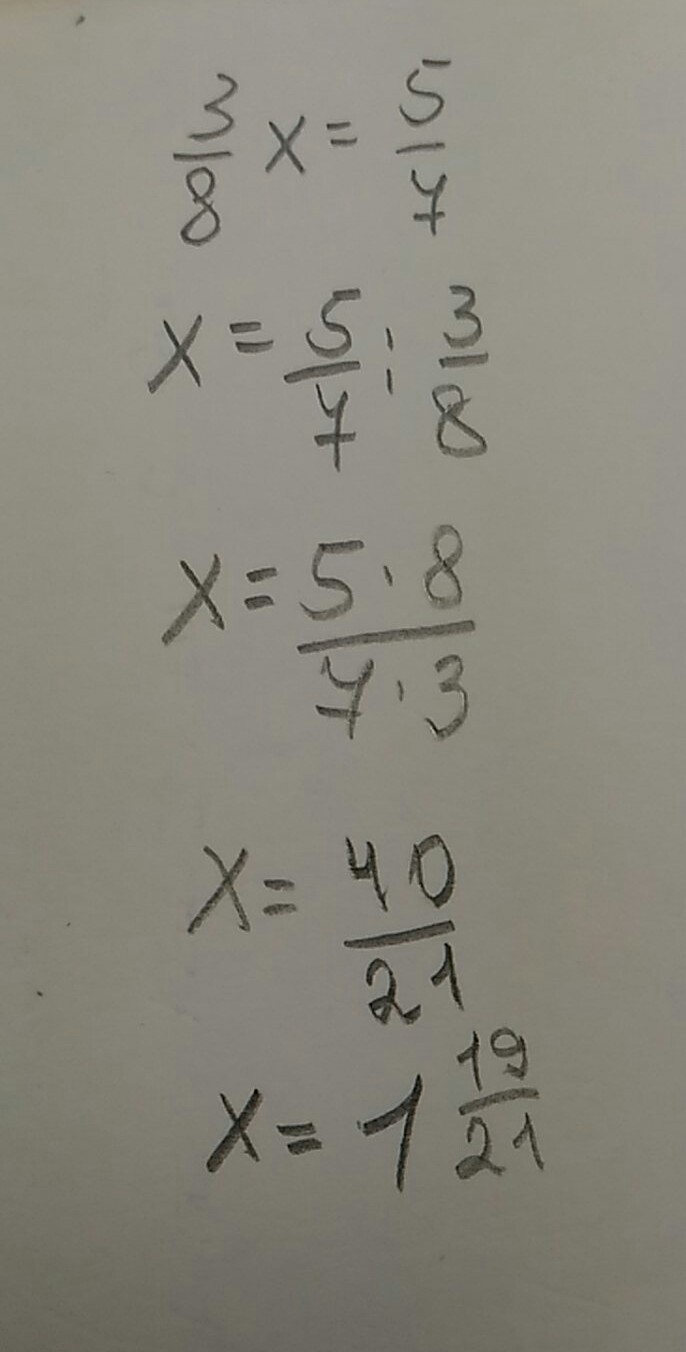 3/8 x = 5/7
x = 5/7 : 3/8
x = 5·8/7·3
x = 40/21
x = 1 19/21